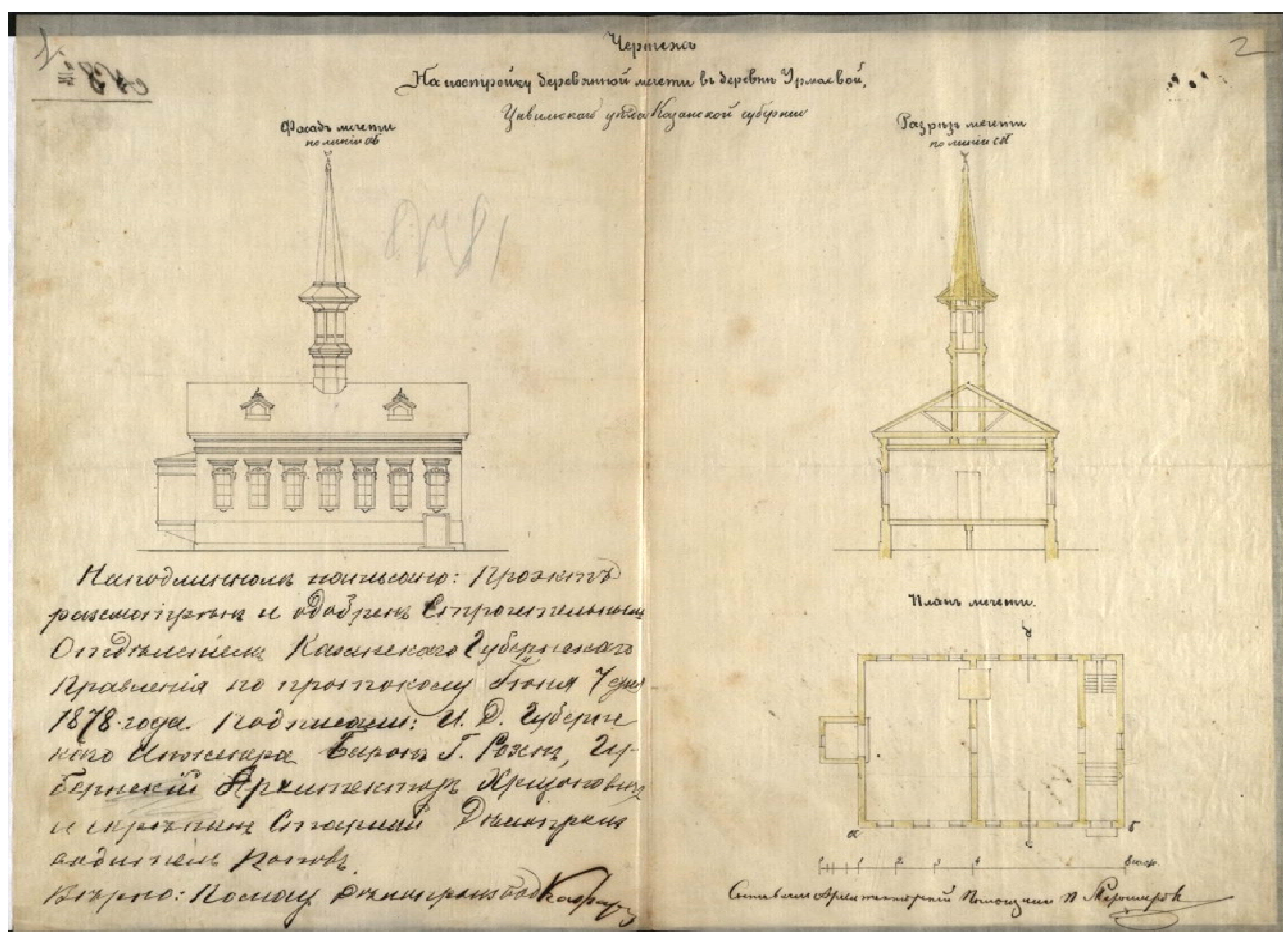 Чертежъ
На постройку деревянной мечети въ деревнѣ Урмаевой,
Цивильскаго уѣзда Казанской губерніи
Фасадъ мечети
по линіи аб
Разрѣзъ мечети
по линіи сд
1878
2
На подлинномъ написано: Проэктъ
разсмотрѣнъ и одобренъ Строительнымъ
Отдѣленіемъ Казанскаго Губернскаго
Правленія по протоколу Іюня 7 дня
1878 года. Подписали: И. Д. Губернскаго Инженера Баронъ Г. Розенъ, Гу-
бернскій Архитекторъ
и скрѣпилъ Старшій Дѣлопроиз-
водитель Поповъ.
Вѣрно:
Планъ мечети.
а
б
с
Составилъ Архитекторскій Помощникъ П.